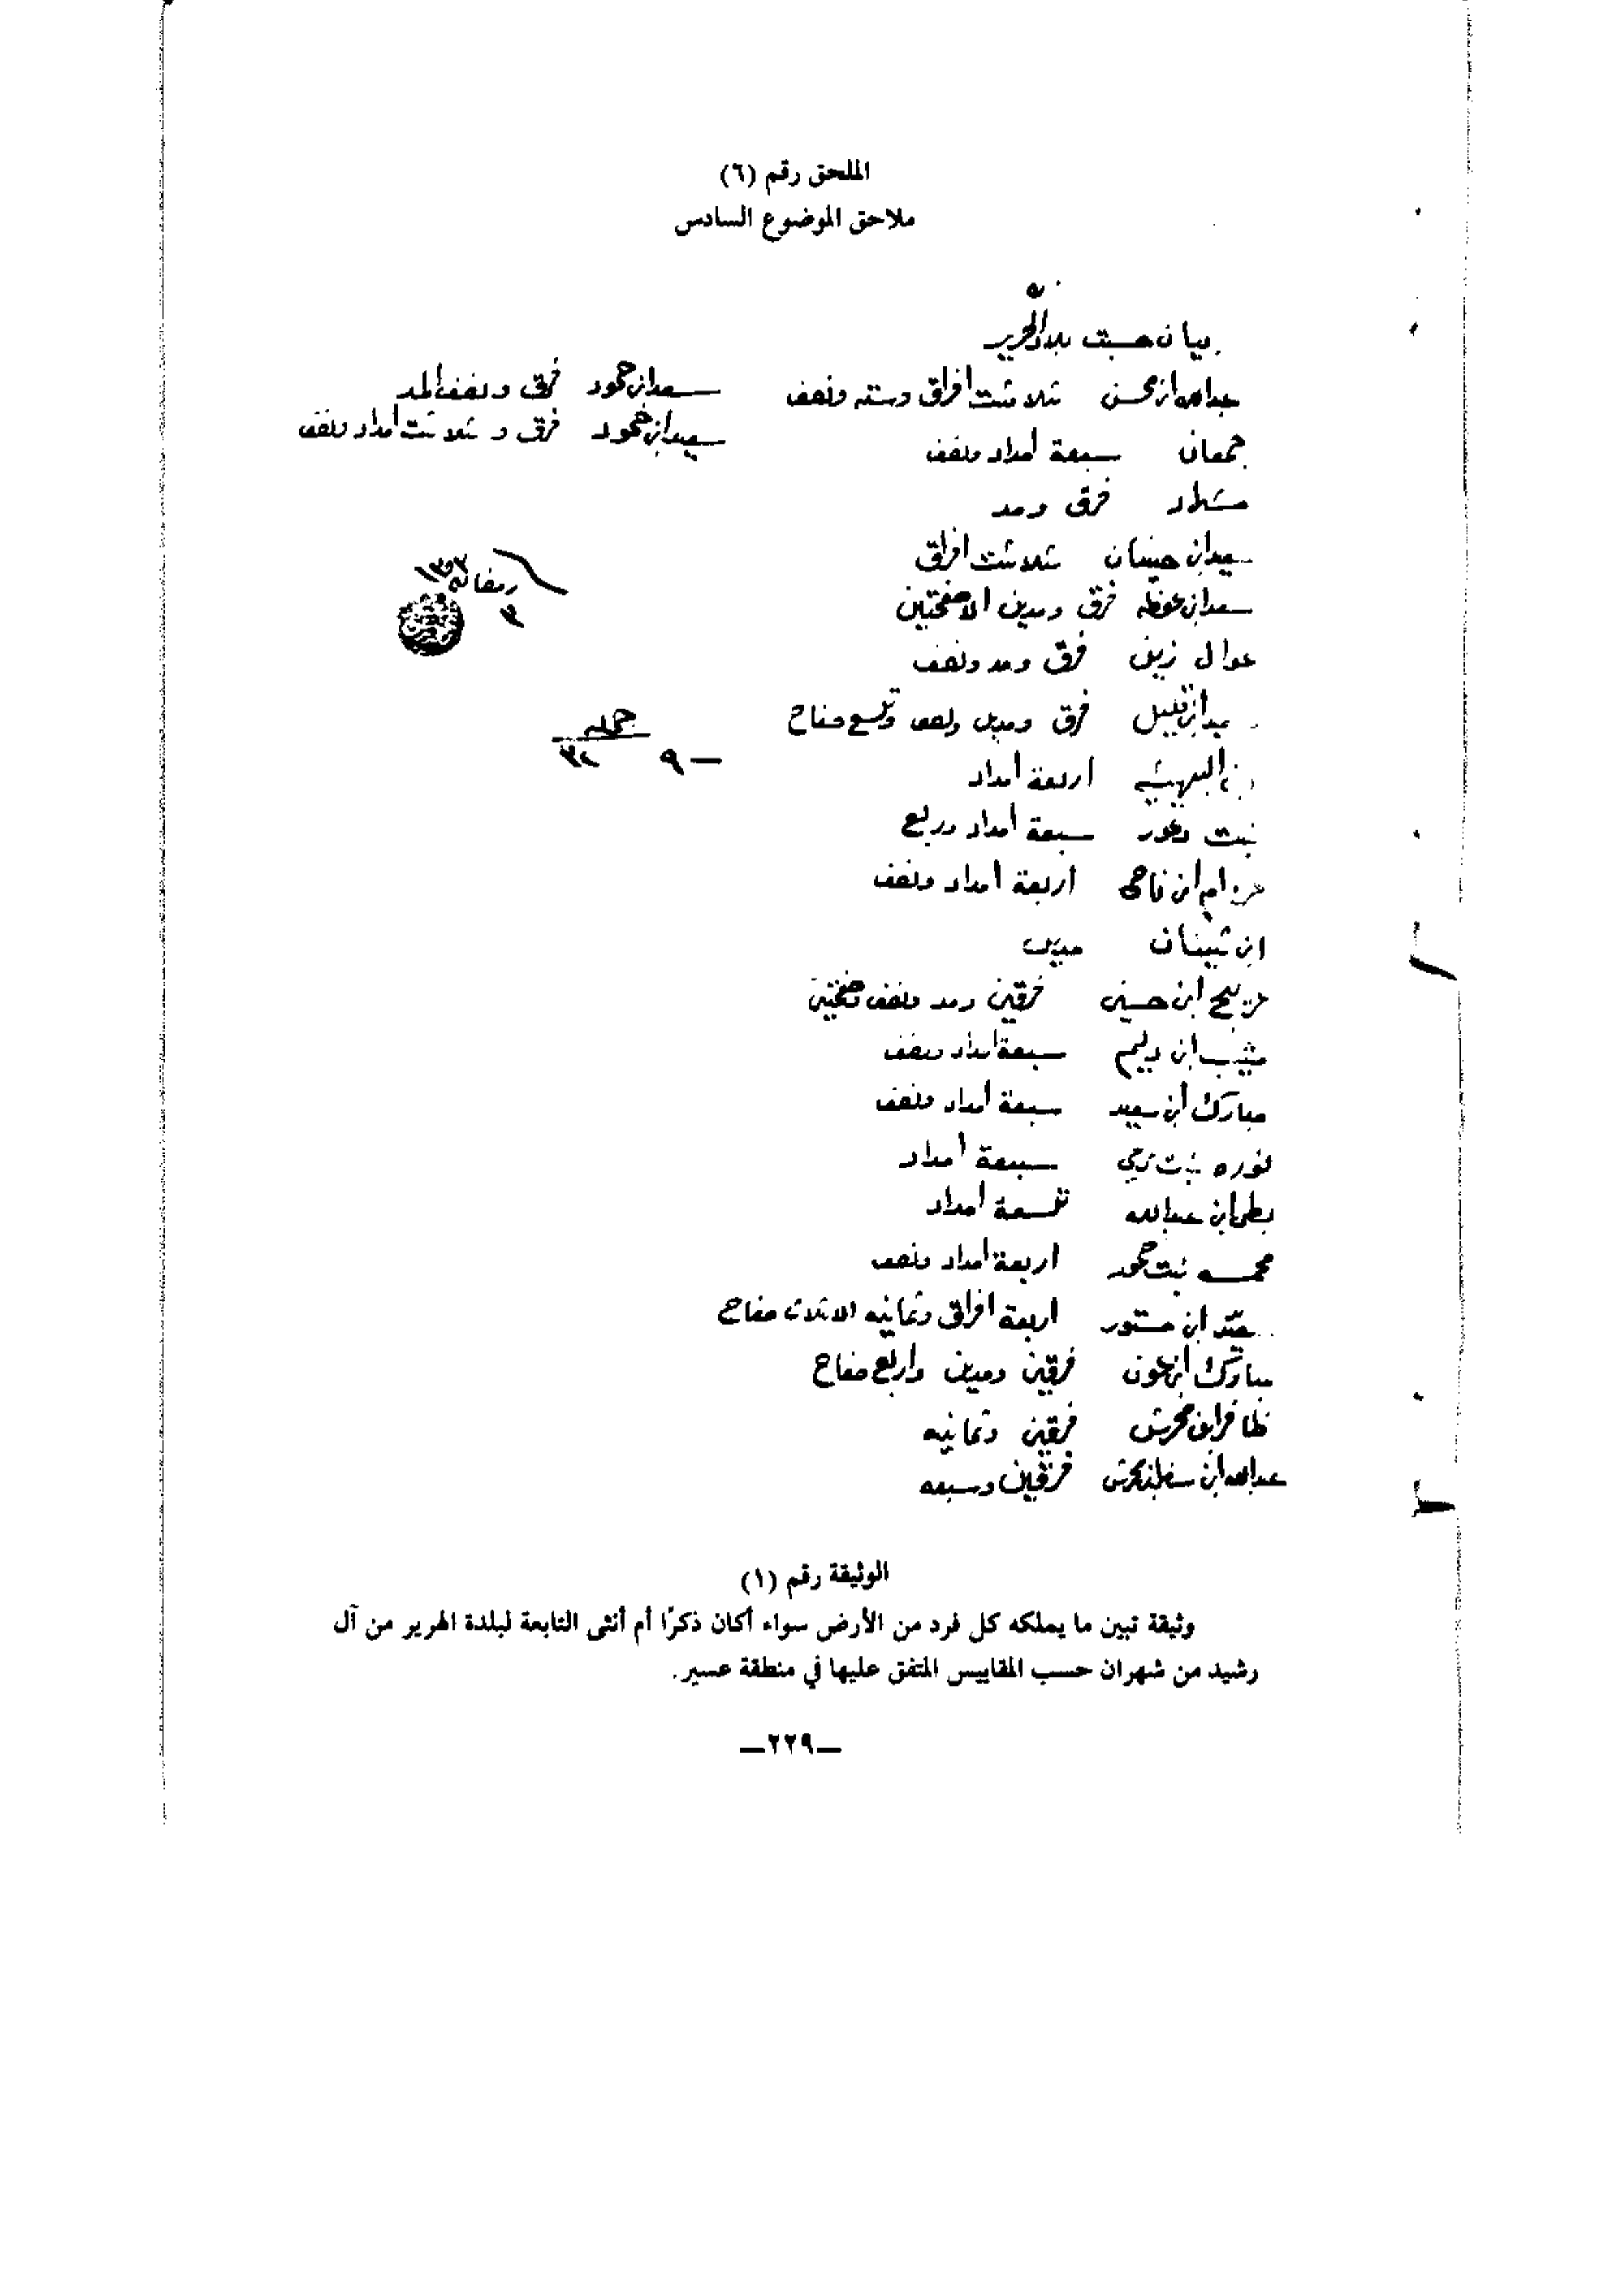 الملحق رقم (٦)
ملاحق الموضوع السادس
بيان حسبت بلاد الحرير
عبدالله ابن محسن ثلاثت افراق وسته ونصف
سعد ابن حمود فرق ونصف المد
سعيد ابن حمود فرق و ثلاثت أمداد ونصف
جمعان سبعة أمداد ونصف
فرق ومد
سعيد ابن ثلاثت افراق
رمضان ١٣٥٣
٣
سعد ابن فرق ومدين الا صفحتين
زين فرق ومد ونصف
فرق ومدين ونصف وتسع صفاح
جمله
٩ ٣٢
اربعة أمداد
بنت سبعة أمداد وربع
ابن ناجي أربعة أمداد ونصف
ابن ثبينان مدين
ابن حسين فرقين ومد ونصف وصفحتين
شبيب ابن دليم سبعة امداد ونصف
مبارك ابن سعيد سبعة أمداد ونصف
نوره بنت سبعة أمداد
ابن عبدالله تسعة أمداد
بنت حمود اربعة امداد ونصف
ابن مستور اربعة افراق وثمانيه الا ثلاث صفاح
مبارك ابن عون فرقين ومدين واربع صفاح
ظافر ابن محرش فرقين وثمانيه
عبدالله ابن فرقين وسبعه
الوثيقة رقم (١)
وثيقة تبين ما يملكه كل فرد من الأرض سواء أكان ذكرًا أم أنثى التابعة لبلدة الهرير من آل
رشيد من شهران حسب المقاييس المتفق عليها في منطقة عسير.
—٢٢٩—